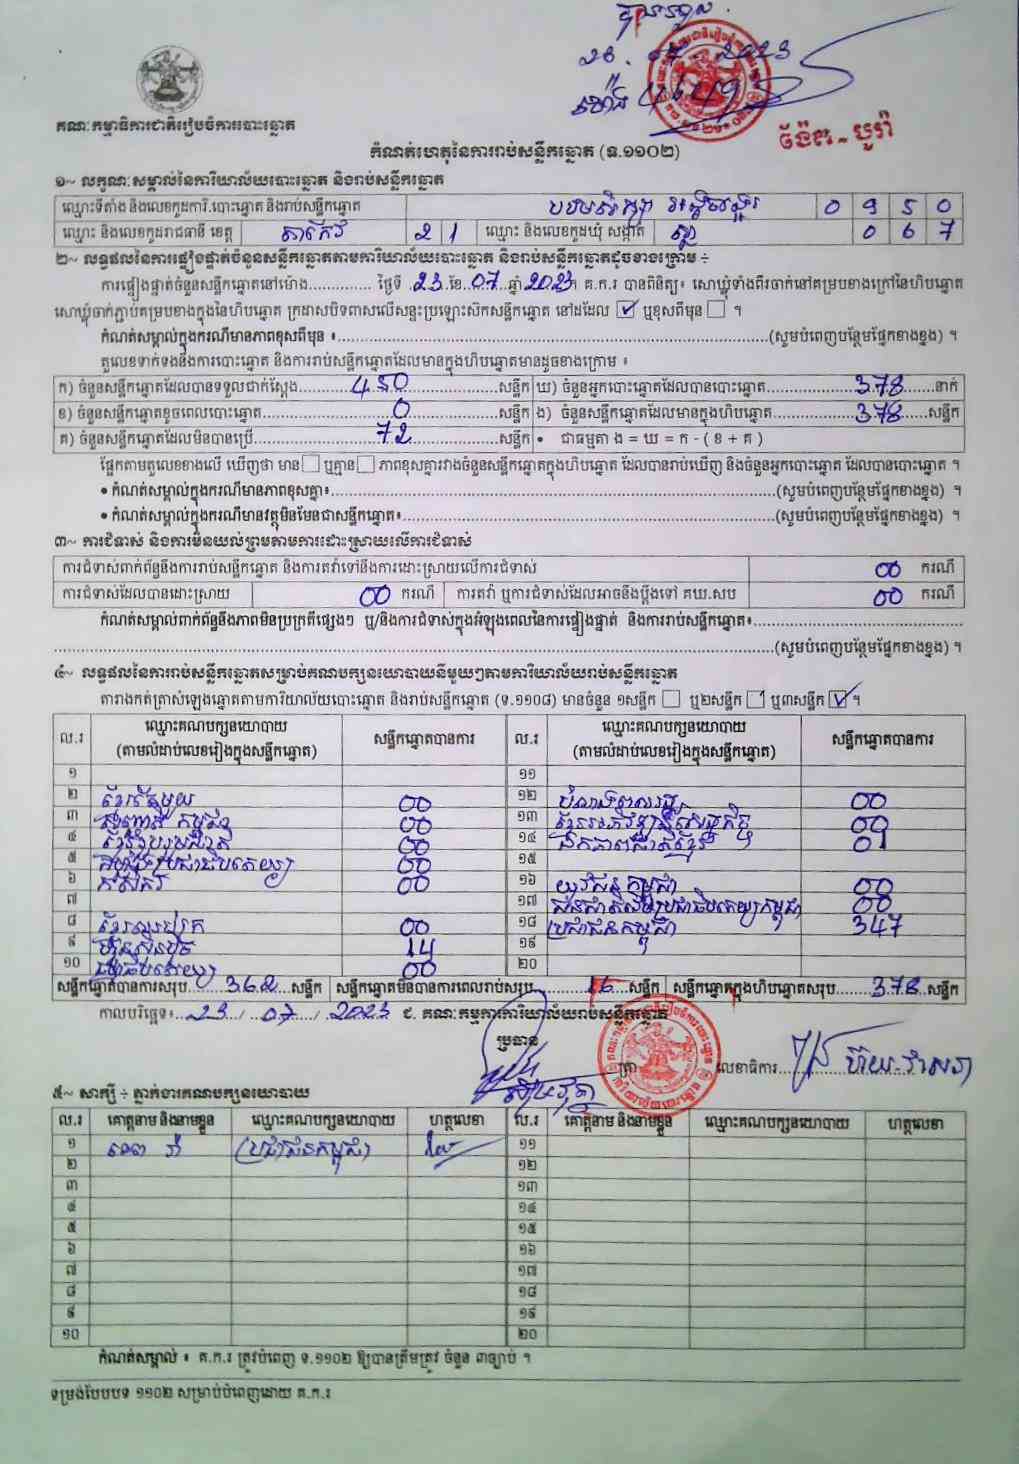 គណៈកម្មាធិការជាតិរៀបចំការបោះឆ្នោត
កំណត់ហេតុនៃការរាប់សន្លឹកឆ្នោត (ទ.១១០២)
១~ លក្ខណៈសម្គាល់នៃការិយាល័យបោះឆ្នោត និងរាប់សន្លឹកឆ្នោត
ឈ្មោះទីតាំង និងលេខកូដការិ.បោះឆ្នោត និងរាប់សន្លឹកឆ្នោត 0 9 5 0
ឈ្មោះ និងលេខកូដរាជធានី ខេត្ត តាកែវ 2 1 ឈ្មោះ និងលេខកូដឃុំ សង្កាត់ 0 6 7
២~ លទ្ធផលនៃការផ្ទៀងផ្ទាត់ចំនួនសន្លឹកឆ្នោតតាមការិយាល័យបោះឆ្នោត និងរាប់សន្លឹកឆ្នោតដូចខាងក្រោម ÷
ការផ្ទៀងផ្ទាត់ចំនួនសន្លឹកឆ្នោតនៅម៉ោង.............. ថ្ងៃទី .23. ខែ..07.. ឆ្នាំ 2023។ គ.ក.រ បានពិនិត្យ៖ សោឃ្លុំទាំងពីរចាក់នៅគម្របខាងក្រៅនៃហិបឆ្នោត
សោឃ្លុំចាក់ភ្ជាប់គម្របខាងក្នុងនៃហិបឆ្នោត ក្រដាសបិទពាសលើសន្ទះប្រឡោះស៊កសន្លឹកឆ្នោត នៅដដែល ☑ ឬខុសពីមុន ☐ ។
កំណត់សម្គាល់ក្នុងករណីមានភាពខុសពីមុន ៖......(សូមបំពេញបន្ថែមផ្នែកខាងខ្នង) ។
តួលេខទាក់ទងនឹងការបោះឆ្នោត និងការរាប់សន្លឹកឆ្នោតដែលមានក្នុងហិបឆ្នោតមានដូចខាងក្រោម ៖
ក) ចំនួនសន្លឹកឆ្នោតដែលបានទទួលជាក់ស្តែង......450......សន្លឹក ឃ) ចំនួនអ្នកបោះឆ្នោតដែលបានបោះឆ្នោត......378......នាក់
ខ) ចំនួនសន្លឹកឆ្នោតខូចពេលបោះឆ្នោត......0......សន្លឹក ង) ចំនួនសន្លឹកឆ្នោតដែលមានក្នុងហិបឆ្នោត......378......សន្លឹក
គ) ចំនួនសន្លឹកឆ្នោតដែលមិនបានប្រើ......72......សន្លឹក • ជាធម្មតា ង = ឃ = ក - ( ខ + គ )
ផ្អែកតាមតួលេខខាងលើ ឃើញថា មាន ☐ ឬគ្មាន ☐ ភាពខុសគ្នារវាងចំនួនសន្លឹកឆ្នោតក្នុងហិបឆ្នោត ដែលបានរាប់ឃើញ និងចំនួនអ្នកបោះឆ្នោត ដែលបានបោះឆ្នោត ។
• កំណត់សម្គាល់ក្នុងករណីមានភាពខុសគ្នា៖......(សូមបំពេញបន្ថែមផ្នែកខាងខ្នង) ។
• កំណត់សម្គាល់ក្នុងករណីមានវត្ថុមិនមែនជាសន្លឹកឆ្នោត៖......(សូមបំពេញបន្ថែមផ្នែកខាងខ្នង) ។
៣~ ការជំទាស់ និងការមិនយល់ព្រមតាមការដោះស្រាយលើការជំទាស់
ការជំទាស់ពាក់ព័ន្ធនឹងការរាប់សន្លឹកឆ្នោត និងការតវ៉ាទៅនឹងការដោះស្រាយលើការជំទាស់ 00 ករណី
ការជំទាស់ដែលបានដោះស្រាយ 00 ករណី ការតវ៉ា ឬការជំទាស់ដែលអាចនឹងប្តឹងទៅ គឃ.សប 00 ករណី
កំណត់សម្គាល់ពាក់ព័ន្ធនឹងភាពមិនប្រក្រតីផ្សេងៗ ឬ/និងការជំទាស់ក្នុងអំឡុងពេលនៃការផ្ទៀងផ្ទាត់ និងការរាប់សន្លឹកឆ្នោត៖......
......(សូមបំពេញបន្ថែមផ្នែកខាងខ្នង) ។
៤~ លទ្ធផលនៃការរាប់សន្លឹកឆ្នោតសម្រាប់គណបក្សនយោបាយនីមួយៗតាមការិយាល័យរាប់សន្លឹកឆ្នោត
តារាងកត់ត្រាសំឡេងឆ្នោតតាមការិយាល័យបោះឆ្នោត និងរាប់សន្លឹកឆ្នោត (ទ.១១០៨) មានចំនួន ១សន្លឹក ☐ ឬ២សន្លឹក ☐ ឬ៣សន្លឹក ☑ ។
ល.រ ឈ្មោះគណបក្សនយោបាយ (តាមលំដាប់លេខរៀងក្នុងសន្លឹកឆ្នោត) សន្លឹកឆ្នោតបានការ ល.រ ឈ្មោះគណបក្សនយោបាយ (តាមលំដាប់លេខរៀងក្នុងសន្លឹកឆ្នោត) សន្លឹកឆ្នោតបានការ
១ ១១
២ 00 ១២ 00
៣ 00 ១៣
៤ 00 ១៤
៥ 00 ១៥
៦ កសិករ 00 ១៦ យុវជនកម្ពុជា 00
៧ ១៧ 00
៨ 00 ១៨ ប្រជាជនកម្ពុជា 347
៩ 14 ១៩
១០ 00 ២០
សន្លឹកឆ្នោតបានការសរុប...362...សន្លឹក សន្លឹកឆ្នោតមិនបានការពេលរាប់សរុប...16...សន្លឹក សន្លឹកឆ្នោតក្នុងហិបឆ្នោតសរុប...378...សន្លឹក
កាលបរិច្ឆេទ៖ 23 / 07 / 2023 ជ. គណៈកម្មការការិយាល័យរាប់សន្លឹកឆ្នោត
ប្រធាន
ត្រា លេខាធិការ
៥~ សាក្សី ÷ ភ្នាក់ងារគណបក្សនយោបាយ
ល.រ គោត្តនាម និងនាមខ្លួន ឈ្មោះគណបក្សនយោបាយ ហត្ថលេខា ល.រ គោត្តនាម និងនាមខ្លួន ឈ្មោះគណបក្សនយោបាយ ហត្ថលេខា
១ ប្រជាជនកម្ពុជា ១១
២ ១២
៣ ១៣
៤ ១៤
៥ ១៥
៦ ១៦
៧ ១៧
៨ ១៨
៩ ១៩
១០ ២០
កំណត់សម្គាល់ ៖ គ.ក.រ ត្រូវបំពេញ ទ.១១០២ ឱ្យបានត្រឹមត្រូវ ចំនួន ៣ច្បាប់ ។
ទម្រង់បែបបទ ១១០២ សម្រាប់បំពេញដោយ គ.ក.រ